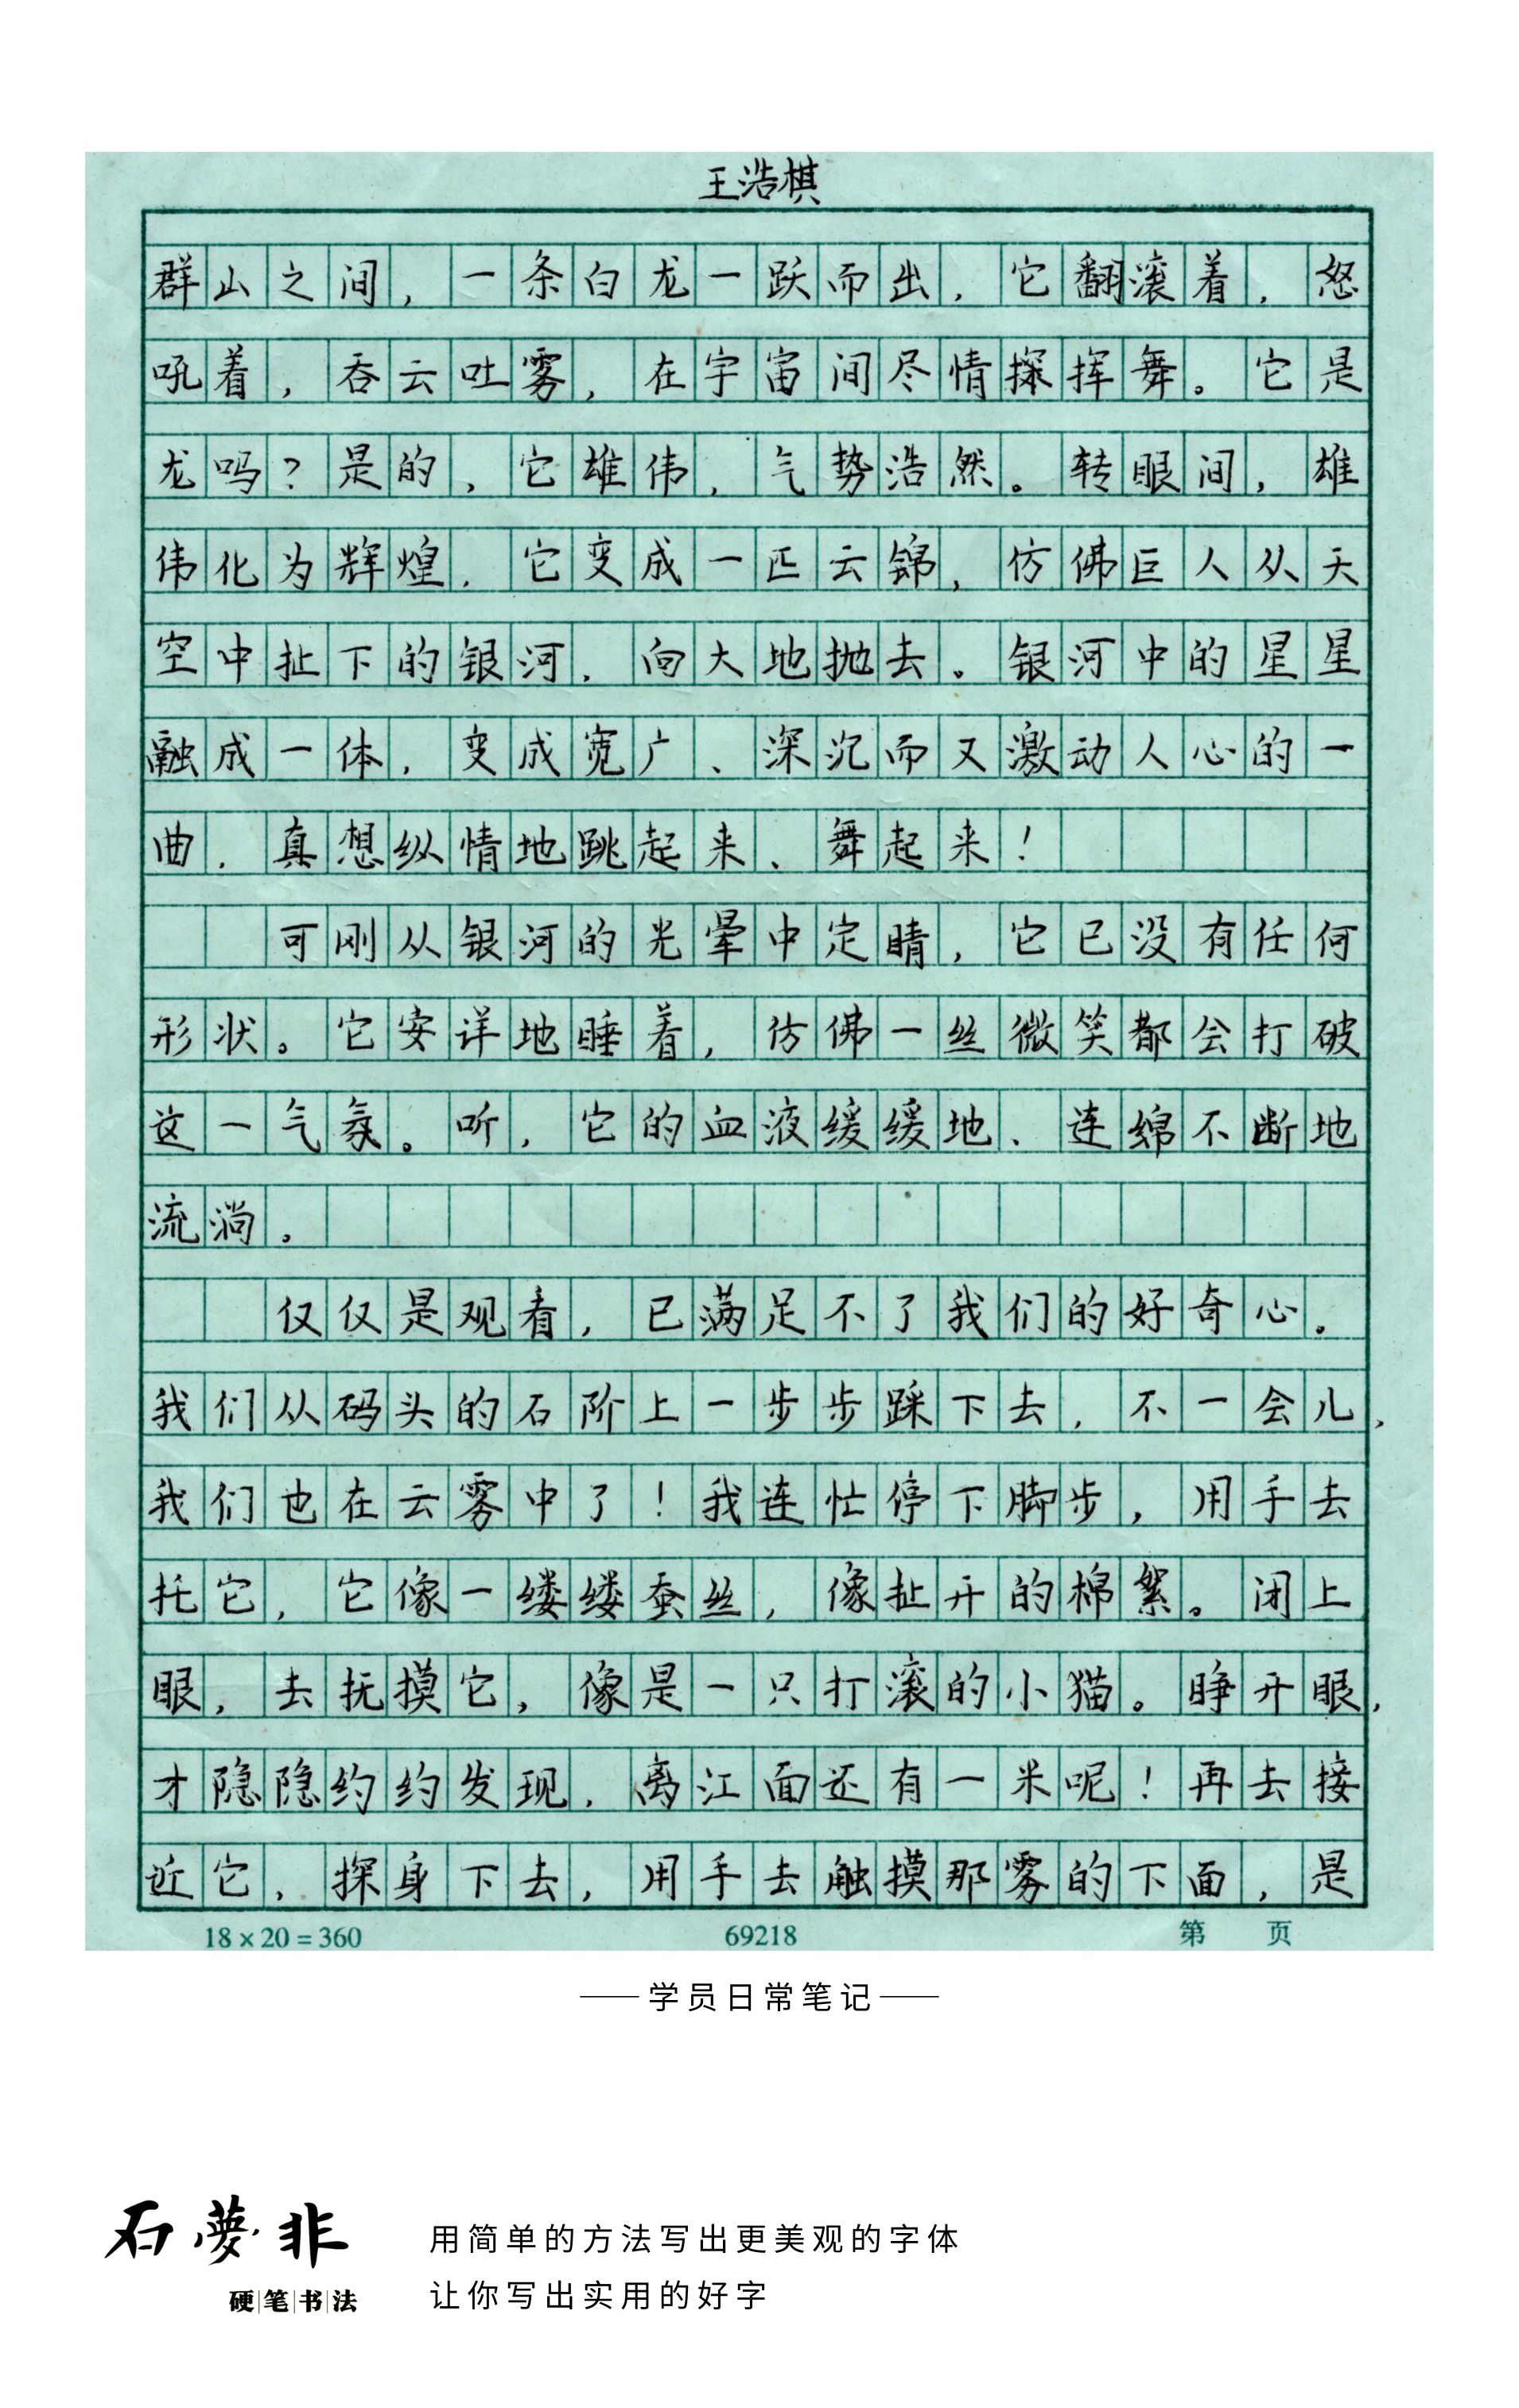 王浩棋
群山之间，一条白龙一跃而出，它翻滚着，怒
吼着，吞云吐雾，在宇宙间尽情探挥舞。它是
龙吗？是的，它雄伟，气势浩然。转眼间，雄
伟化为辉煌，它变成一匹云锦，仿佛巨人从天
空中扯下的银河，向大地抛去。银河中的星星
融成一体，变成宽广、深沉而又激动人心的一
曲，真想纵情地跳起来、舞起来！
可刚从银河的光晕中定睛，它已没有任何
形状。它安详地睡着，仿佛一丝微笑都会打破
这一气氛。听，它的血液缓缓地、连绵不断地
流淌。
仅仅是观看，已满足不了我们的好奇心。
我们从码头的石阶上一步步踩下去，不一会儿，
我们也在云雾中了！我连忙停下脚步，用手去
托它，它像一缕缕蚕丝，像扯开的棉絮。闭上
眼，去抚摸它，像是一只打滚的小猫。睁开眼，
才隐隐约约发现，离江面还有一米呢！再去接
近它，探身下去，用手去触摸那雾的下面，是
18×20=360 69218 第 页
学员日常笔记
石夢非
硬笔书法
用简单的方法写出更美观的字体
让你写出实用的好字